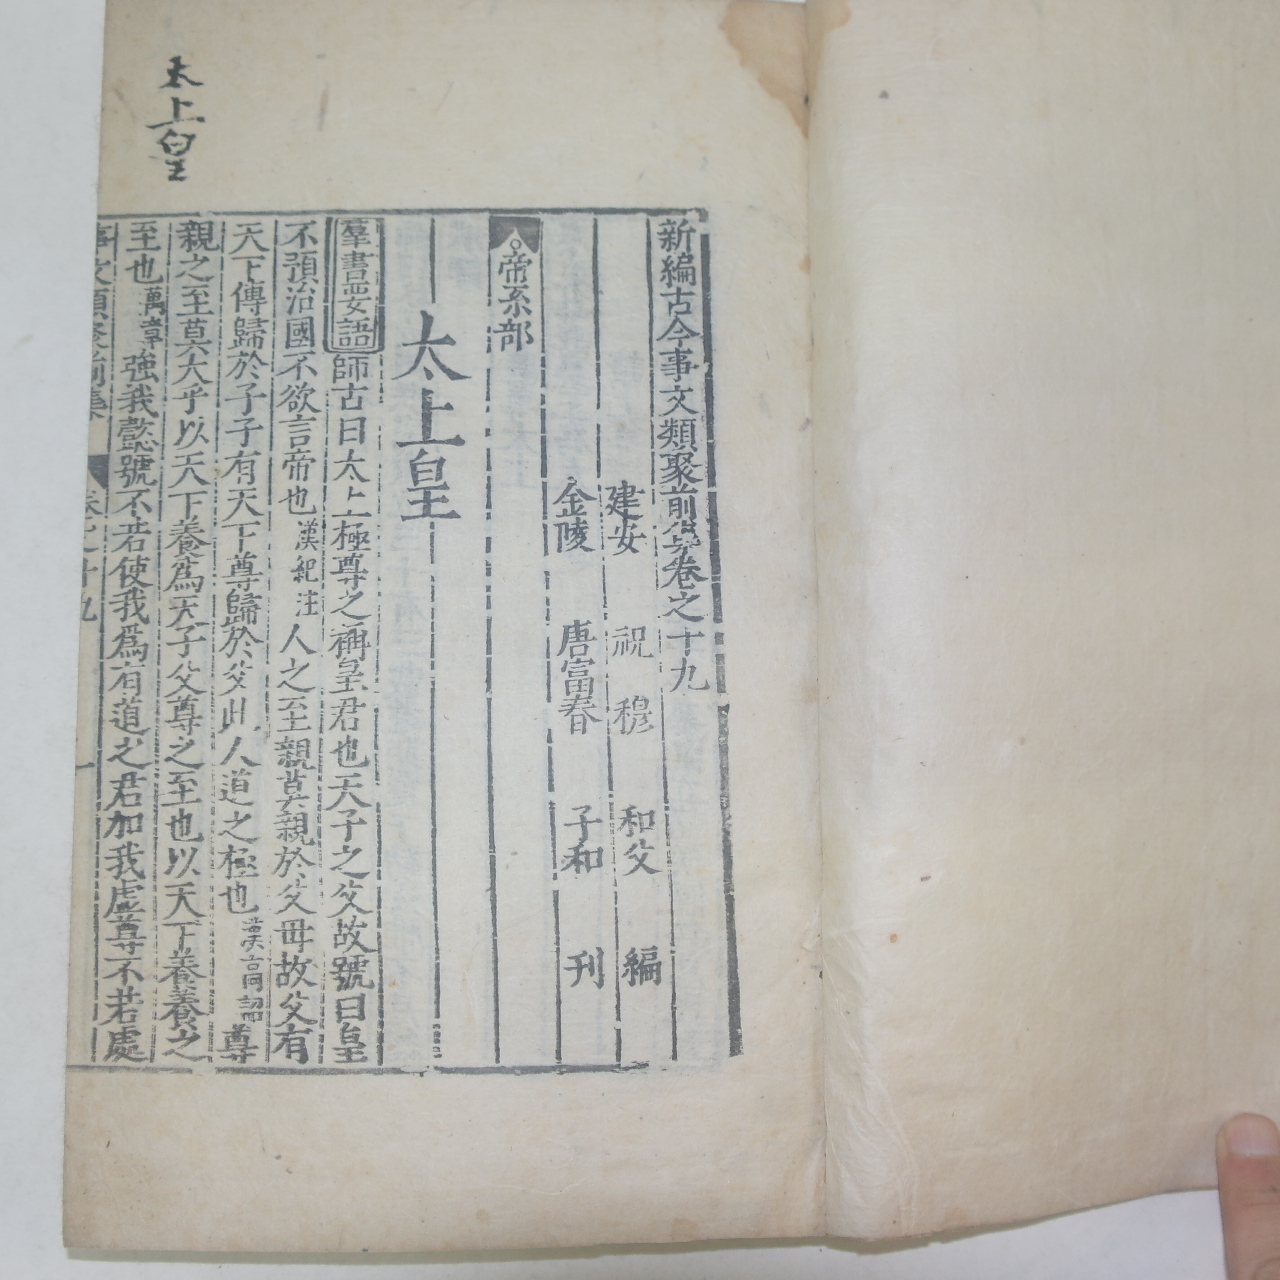 太上皇
新編古今事文類聚前集卷之十九
建安 祝穆 和父 編
金陵 唐富春 子和 刊
帝系部
太上皇
羣書要語 師古曰太上極尊之稱皇君也天子之父故號曰皇
不預治國不欲言帝也 漢紀注 人之至親莫親於父母故父有
天下傳歸於子子有天下尊歸於父此人道之極也 漢高詔 尊
親之至莫大乎以天下養爲天子父尊之至也以天下養養之
至也 萬章 強我懿號不若使我爲有道之君加我虛尊不若處
事文類聚前集 卷之十九 一